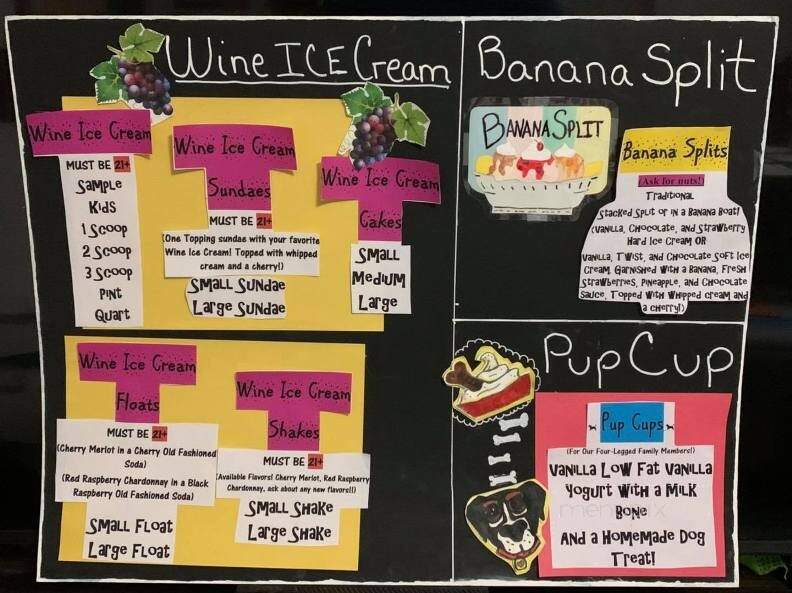 Wine ICE Cream
Wine Ice Cream
MUST BE 21+
Sample
Kids
1 Scoop
2 Scoop
3 Scoop
Pint
Quart
Wine Ice Cream
Sundaes
MUST BE 21+
(One Topping sundae with your favorite
Wine Ice Cream! Topped with whipped
cream and a cherry!)
Small Sundae
Large Sundae
Wine Ice Cream
Cakes
Small
Medium
Large
Wine Ice Cream
Floats
MUST BE 21+
(Cherry Merlot in a Cherry Old Fashioned
Soda)
(Red Raspberry Chardonnay in a Black
Raspberry Old Fashioned Soda)
Small Float
Large Float
Wine Ice Cream
Shakes
MUST BE 21+
(Available Flavors! Cherry Merlot, Red Raspberry
Chardonnay, ask about any new flavors!!)
Small Shake
Large Shake
Banana Split
BANANA SPLIT
Banana Splits
(Ask for nuts!)
Traditional
Stacked Split or in a Banana Boat!
(Vanilla, Chocolate, and Strawberry
Hard Ice Cream OR
Vanilla, Twist, and Chocolate Soft Ice
Cream. Garnished With a Banana, Fresh
Strawberries, Pineapple, and Chocolate
Sauce, Topped With Whipped cream and
a cherry!)
Pup Cup
Pup Cups
(For Our Four-Legged Family Members!)
Vanilla Low Fat Vanilla
Yogurt With a Milk
Bone
And a Homemade Dog
Treat!